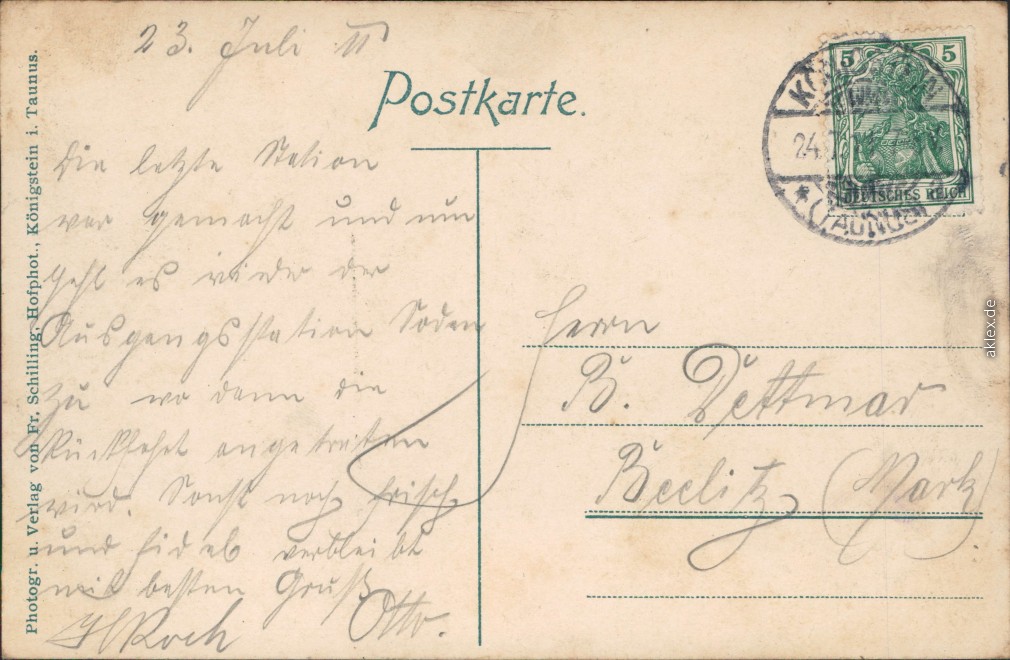 23. Juli 11
Postkarte.
Die letzte Station
war gemacht und nun
geht es wieder der
Ausgangsstation Soden
zu wo dann die
Rückfahrt angetreten
wird. Sonst noch frisch
und fidel verbleibt
mit besten Gruß
Otto.
Koch
5 5
DEUTSCHES REICH
24.
(TAUNUS)
Herrn
B. Dettmar
Beelitz (Mark)
Photogr. u. Verlag von Fr. Schilling, Hofphot., Königstein i. Taunus.
aklex.de